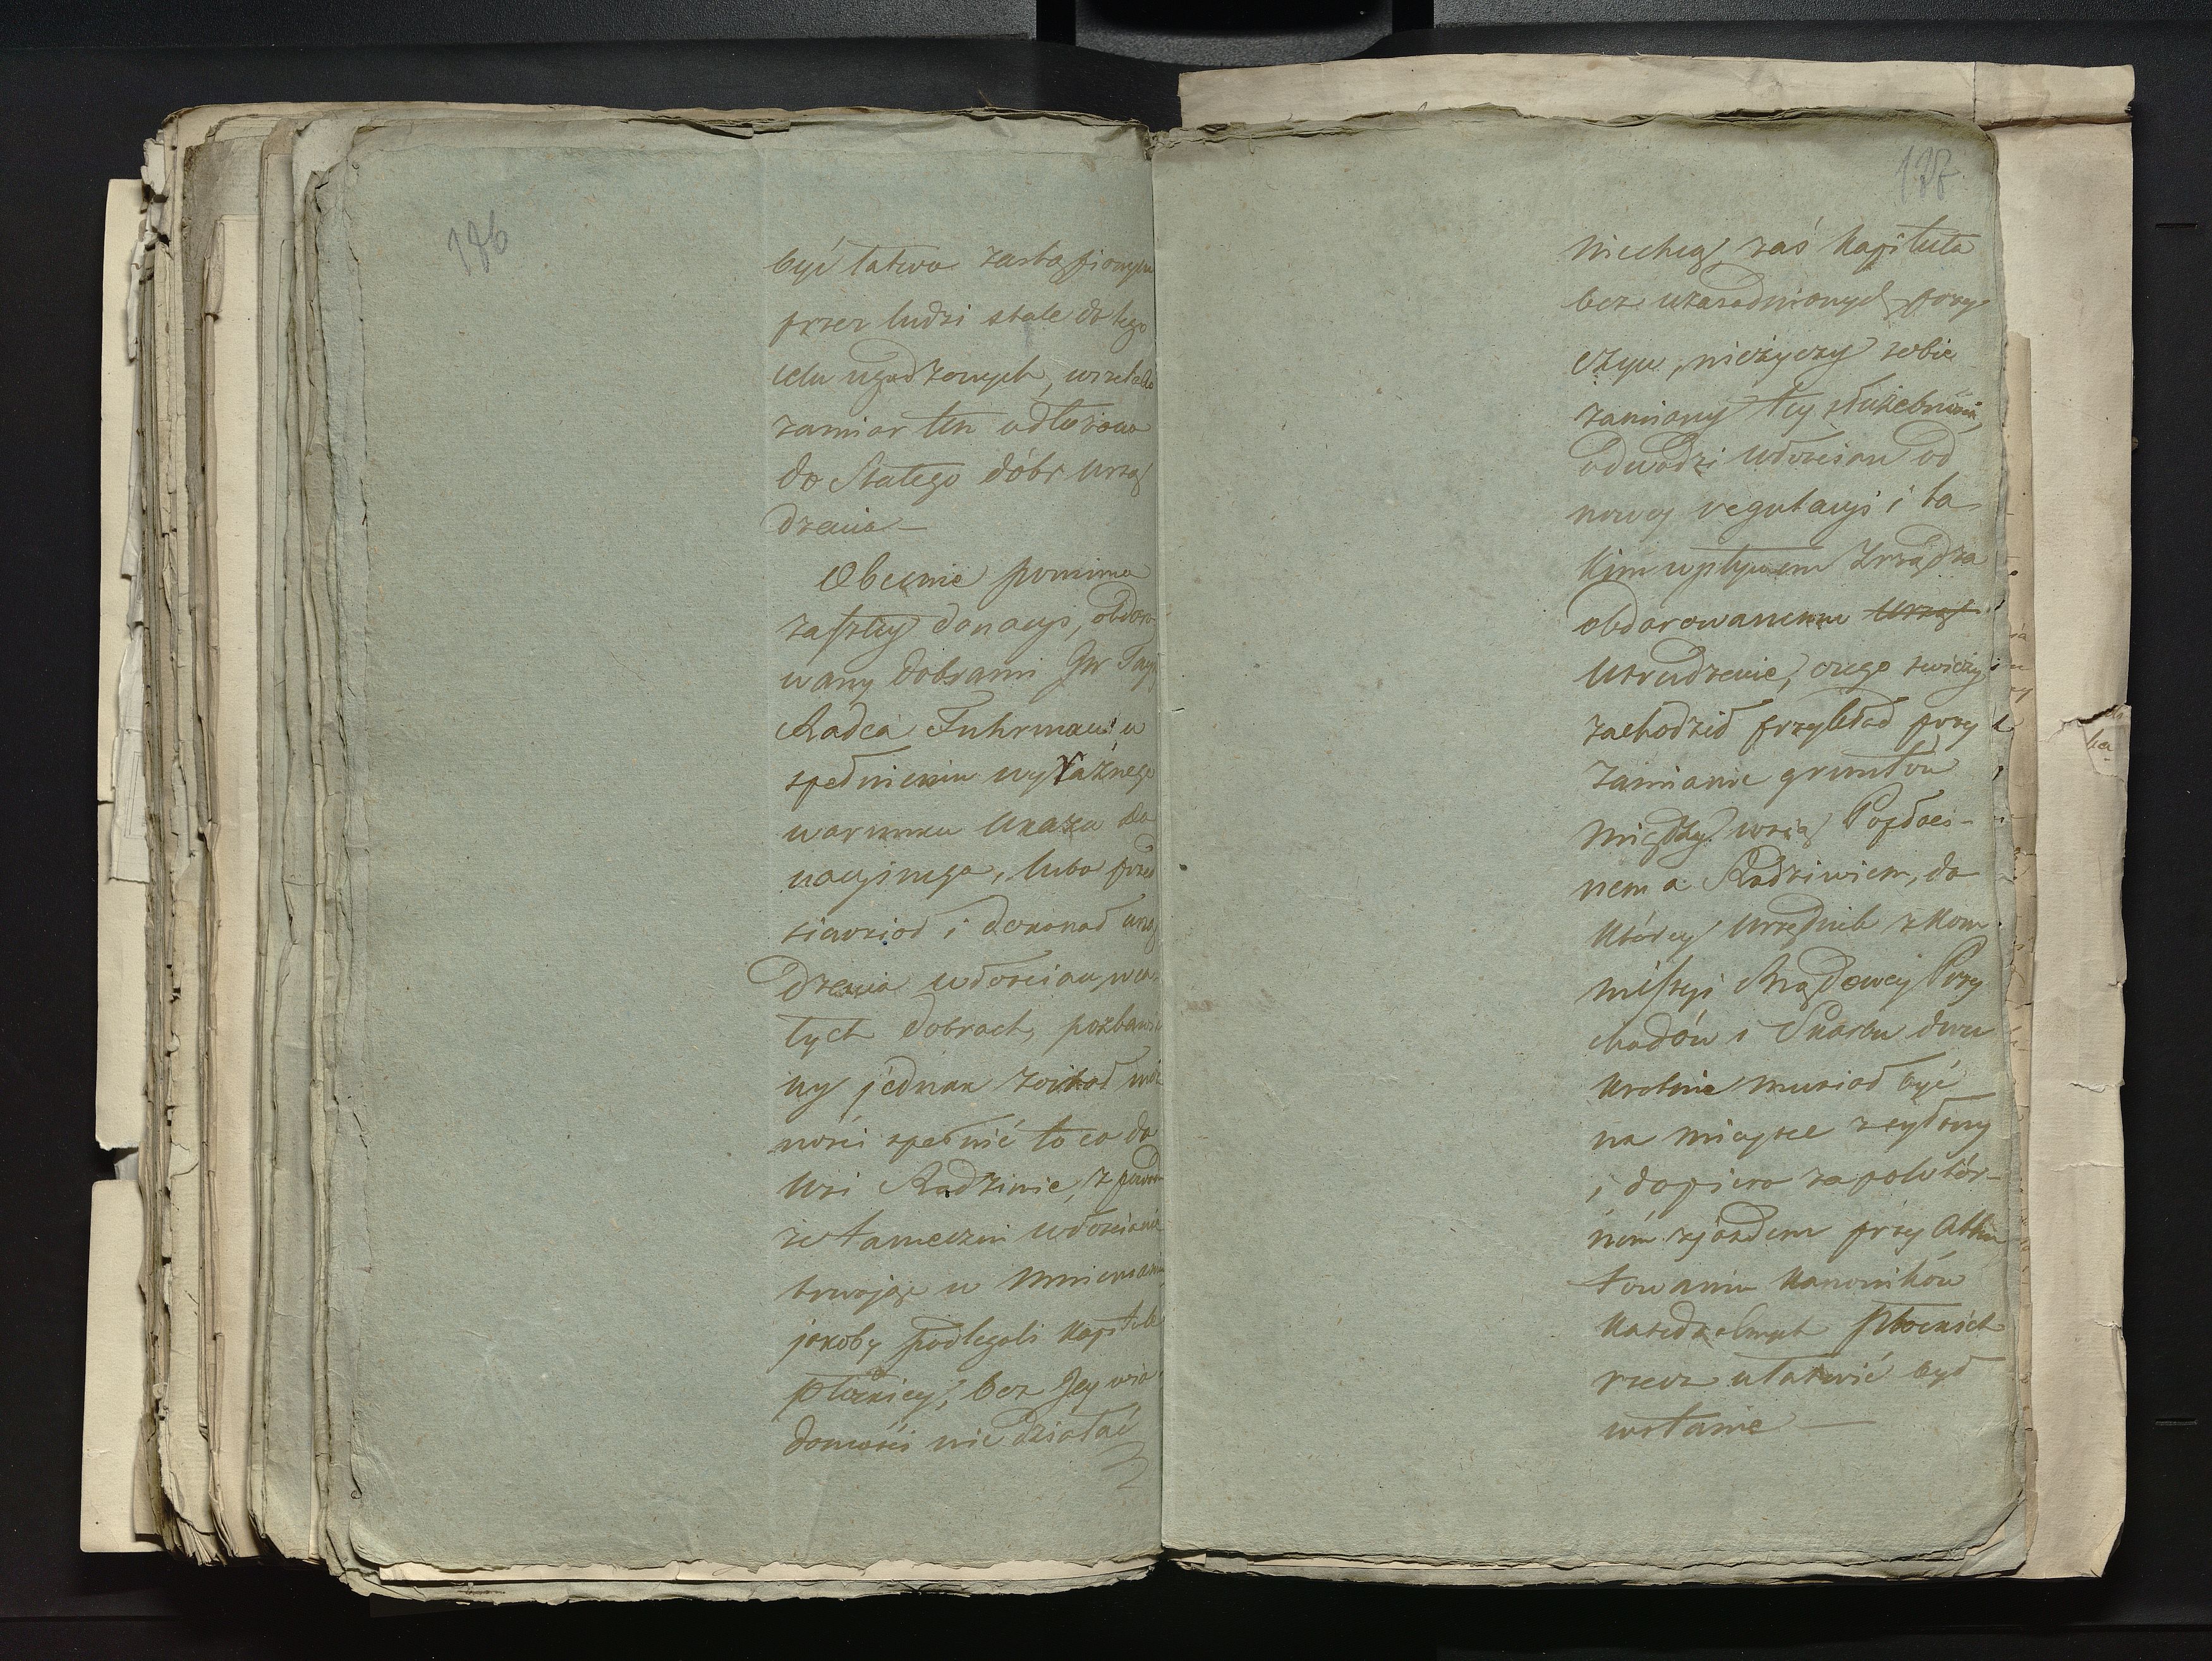 186
być łatwo zastąpionym
przez ludzi stale do tego
celu ugodzonych, wszelako
zamiar ten odłożono
do Stałego dóbr urzą
dzenia —
Obecnie pomimo
zaszłey donacyi, obdaro
wany dobrami JW Tayny
Radca Fuhrmann w
spełnieniu wyraźnego
warunku Ukazu do
nacyjnego, lubo przed
siewziął i dokonał urzą
dzenia włościan, w ca
łych dobrach, pozbawio
ny jednak został moż
ności spełnić to co do
Wsi Radziwie, z powodu
że tameczni włościanie
trwając w mniemaniu
jakoby podlegali Kapitule
Płockiey, bez Jey wia
domości nie działać
187
niechcą, zaś Kapituła
bez uzasadnionych przy
czyn, nieżyczy sobie
zamiany tey służebności,
odwodzi włościan od
nowey regulacyi i ta
kim wpływem zrządza
obdarowanemu
utrudzenie, czego świeży
zachodził przykład przy
zamianie gruntów
między wsią Popłaci-
nem a Radziwiem, do
którey Urzędnik z Kom
missyi Rządowey Przy
chodów i Skarbu dwu
krotnie musiał być
na mieysce zesłany
i dopiero za powtór-
nym zjazdem przy
Kanoników
Katedralnych Płockich
rzecz ułatwić był
wstanie —